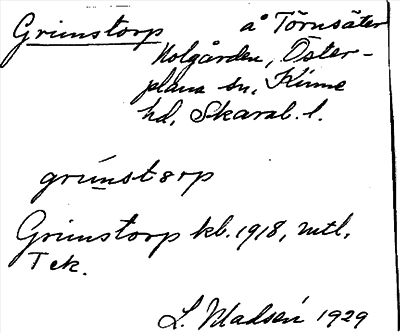 Grimstorp å Törnsäter
Holgården, Öster-
plana sn, Kinne
hd, Skarab. l.
grímstørp
Grimstorp kb. 1918, mtl,
Tek.
L. Madsén 1929